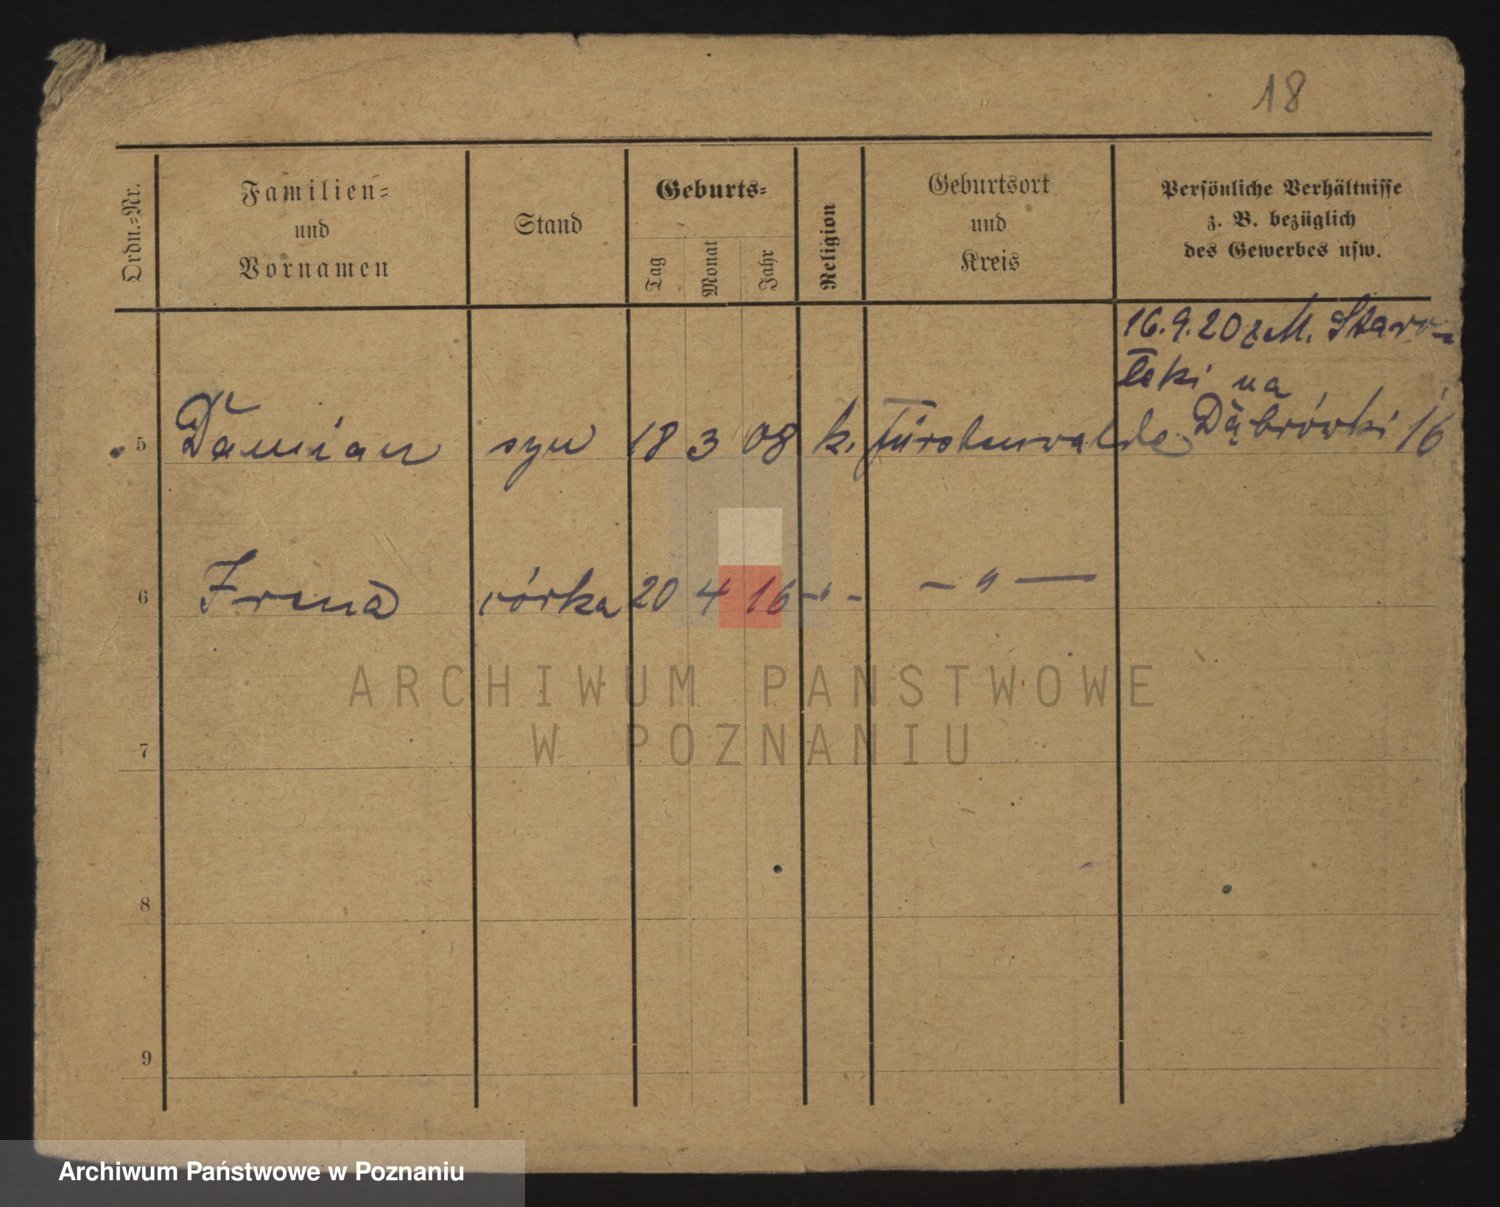 18
Ordn.-Nr.
Familien-
und
Vornamen
Stand
Geburts-
Tag
Monat
Jahr
Religion
Geburtsort
und
Kreis
Persönliche Verhältnisse
z. B. bezüglich
des Gewerbes usw.
16.9.20 z M. Staro-
łęki na
5 Damian syn 18 3 08 k. Fürstenwalde Dąbrówki 16
6 Irena córka 20 4 16 -"- - " -
7
8
9
ARCHIWUM PAŃSTWOWE
W POZNANIU
Archiwum Państwowe w Poznaniu